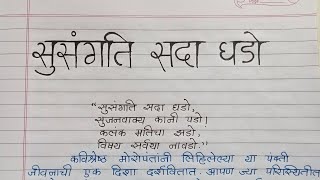 सुसंगति सदा घडो
"सुसंगति सदा घडो,
सुजनवाक्य कानी पडो।
कलंक मतिचा झडो,
विषय सर्वथा नावडो."
कविश्रेष्ठ मोरोपंतांनी लिहिलेल्या या पंक्ती
जीवनाची एक दिशा दर्शवितात. आपण ज्या परिस्थितीत